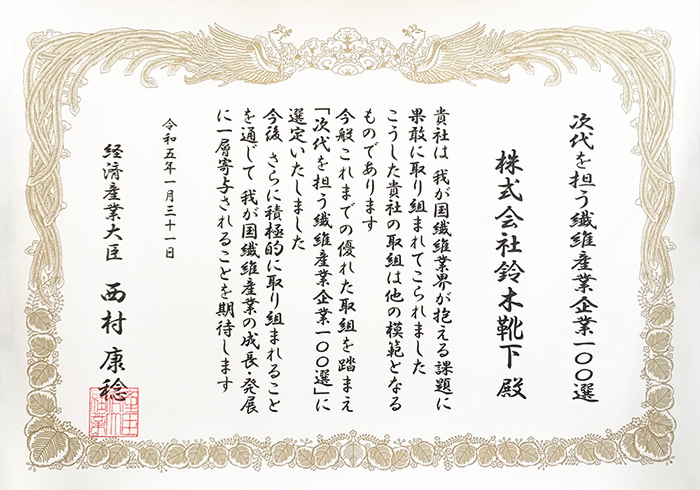 次代を担う繊維産業企業一〇〇選
株式会社鈴木靴下 殿
貴社は 我が国繊維業界が抱える課題に
果敢に取り組まれてこられました
こうした貴社の取組は他の模範となる
ものであります
今般 これまでの優れた取組を踏まえ
「次代を担う繊維産業企業一〇〇選」に
選定いたしました
今後 さらに積極的に取り組まれること
を通じて 我が国繊維産業の成長・発展
に一層寄与されることを期待します
令和五年一月三十一日
経済産業大臣 西村康稔